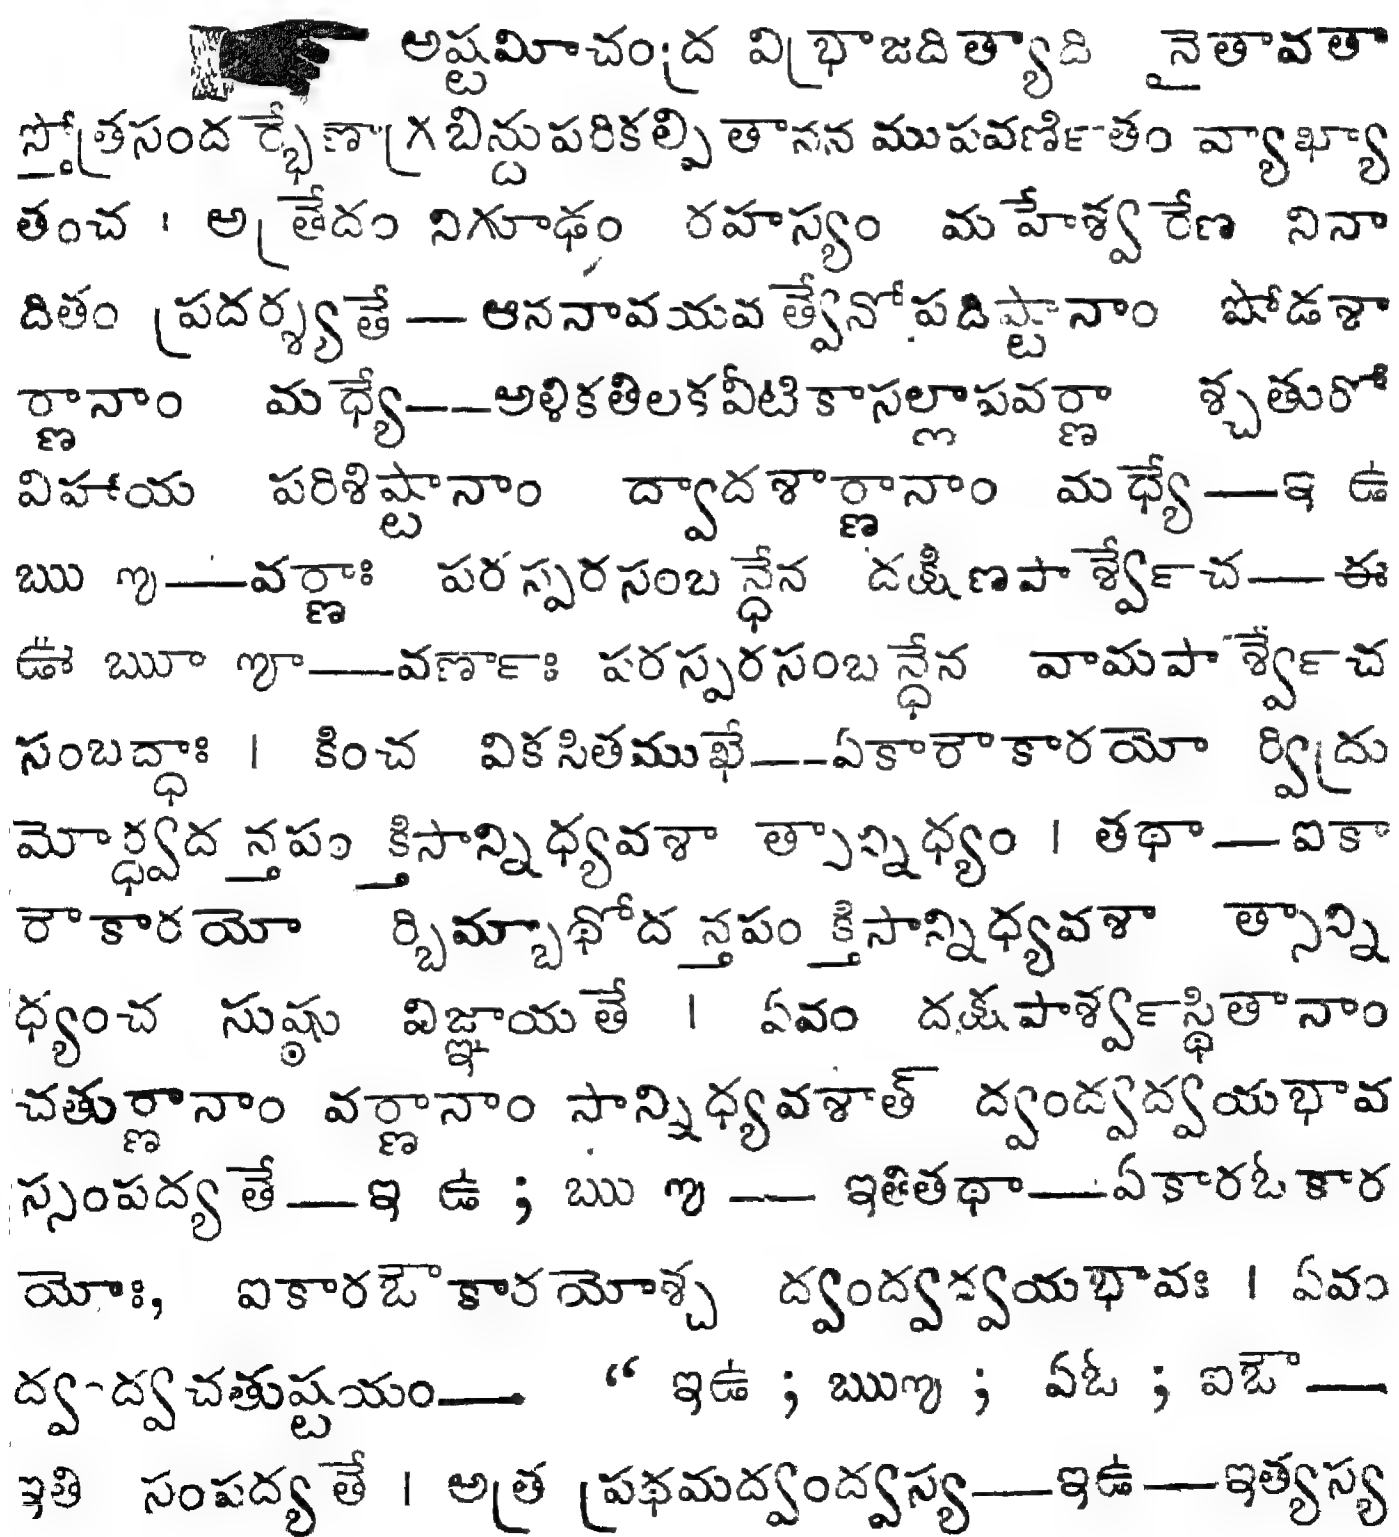 అష్టమీచంద్ర విభ్రాజదిత్యాది నైతావతా
స్తోత్రసందర్భేణాగ్రబిన్దుపరికల్పితానన ముపవర్ణితం వ్యాఖ్యా
తంచ । అత్రేదం నిగూఢం రహస్యం మహేశ్వరేణ నినా
దితం ప్రదర్శ్యతే — ఆననావయవత్వేనోపదిష్టానాం షోడశా
ర్ణానాం మధ్యే—–అళికతిలకవీటికాసల్లాపవర్ణా శ్చతురో
విహాయ పరిశిష్టానాం ద్వాదశార్ణానాం మధ్యే—ఇ ఉ
ఋ ఌ—వర్ణాః పరస్పరసంబన్ధేన దక్షిణపార్శ్వేచ—ఈ
ఊ ౠ ౡ—వర్ణాః పరస్పరసంబన్ధేన వామపార్శ్వేచ
సంబద్ధాః । కించ వికసితముఖే—–ఏకారౌకారయో ర్విద్రు
మోర్ధ్వదన్తపంక్తిసాన్నిధ్యవశా త్సాన్నిధ్యం । తథా—ఐకా
రౌకారయో ర్బిమ్బాథోదన్తపంక్తిసాన్నిధ్యవశా త్సాన్ని
ధ్యంచ సుష్ఠు విజ్ఞాయతే । ఏవం దక్షపార్శ్వస్థితానాం
చతుర్ణానాం వర్ణానాం సాన్నిధ్యవశాత్ ద్వంద్వద్వయభావ
స్సంపద్యతే—ఇ ఉ ; ఋ ఌ — ఇతితథా—ఏకారఓకార
యోః, ఐకారఔకారయోశ్చ ద్వంద్వద్వయభావః । ఏవం
ద్వంద్వచతుష్టయం— “ ఇఉ ; ఋఌ ; ఏఓ ; ఐఔ—
ఇతి సంపద్యతే । అత్ర ప్రథమద్వంద్వస్య—ఇఉ—ఇత్యస్య